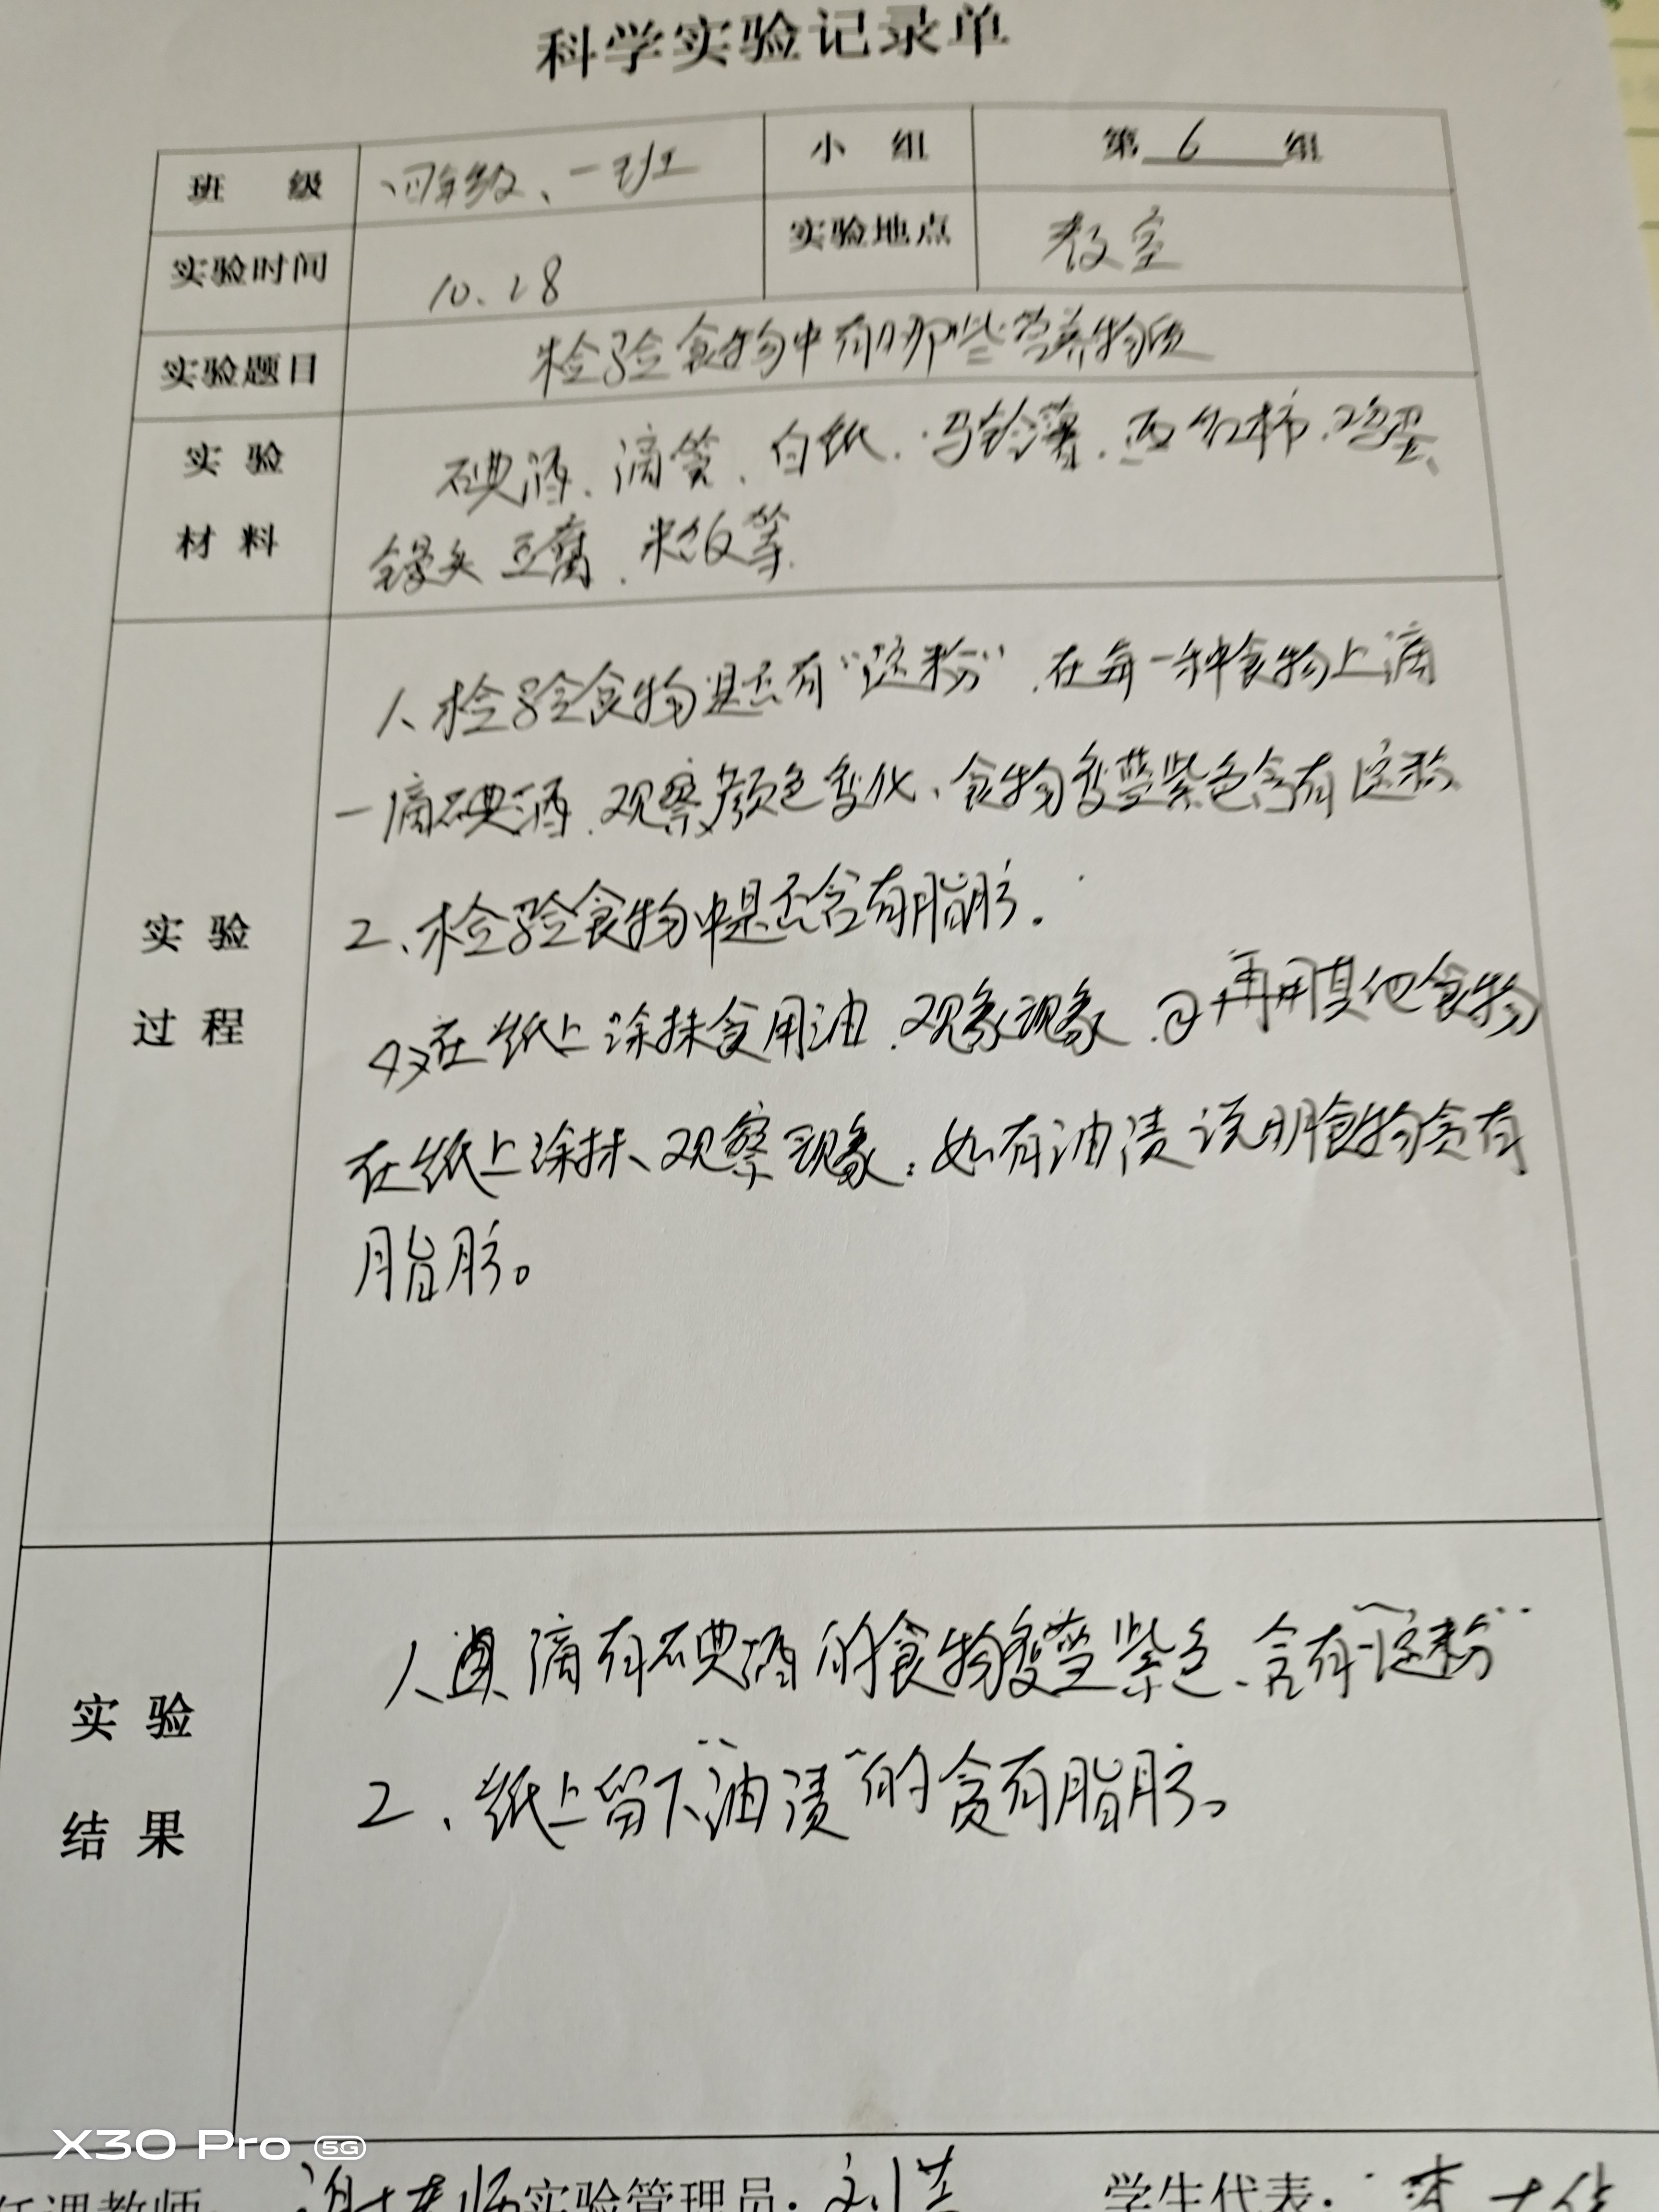 科学实验记录单
班 级 四年级、一班 小 组 第 6 组
实验时间 10.18 实验地点 教室
实验题目 检验食物中有哪些营养物质
实 验 碘酒、滴管、白纸、马铃薯、西红柿、鸡蛋、
材 料 馒头 豆腐、米饭等
1、检验食物是否有“淀粉”,在每一种食物上滴
一滴碘酒,观察颜色变化、食物变蓝紫色含有淀粉
实 验 2、检验食物中是否含有脂肪。
过 程 <1>在纸上涂抹食用油,观象现象,②再用其他食物
在纸上涂抹、观察现象,如有油渍说明食物含有
脂肪。
1、滴有碘酒的食物变蓝紫色、含有“淀粉”
实 验
2、纸上留下“油渍”的含有脂肪。
结 果
任课教师: 谢老师 实验管理员: 学生代表: 李
X30 Pro 5G